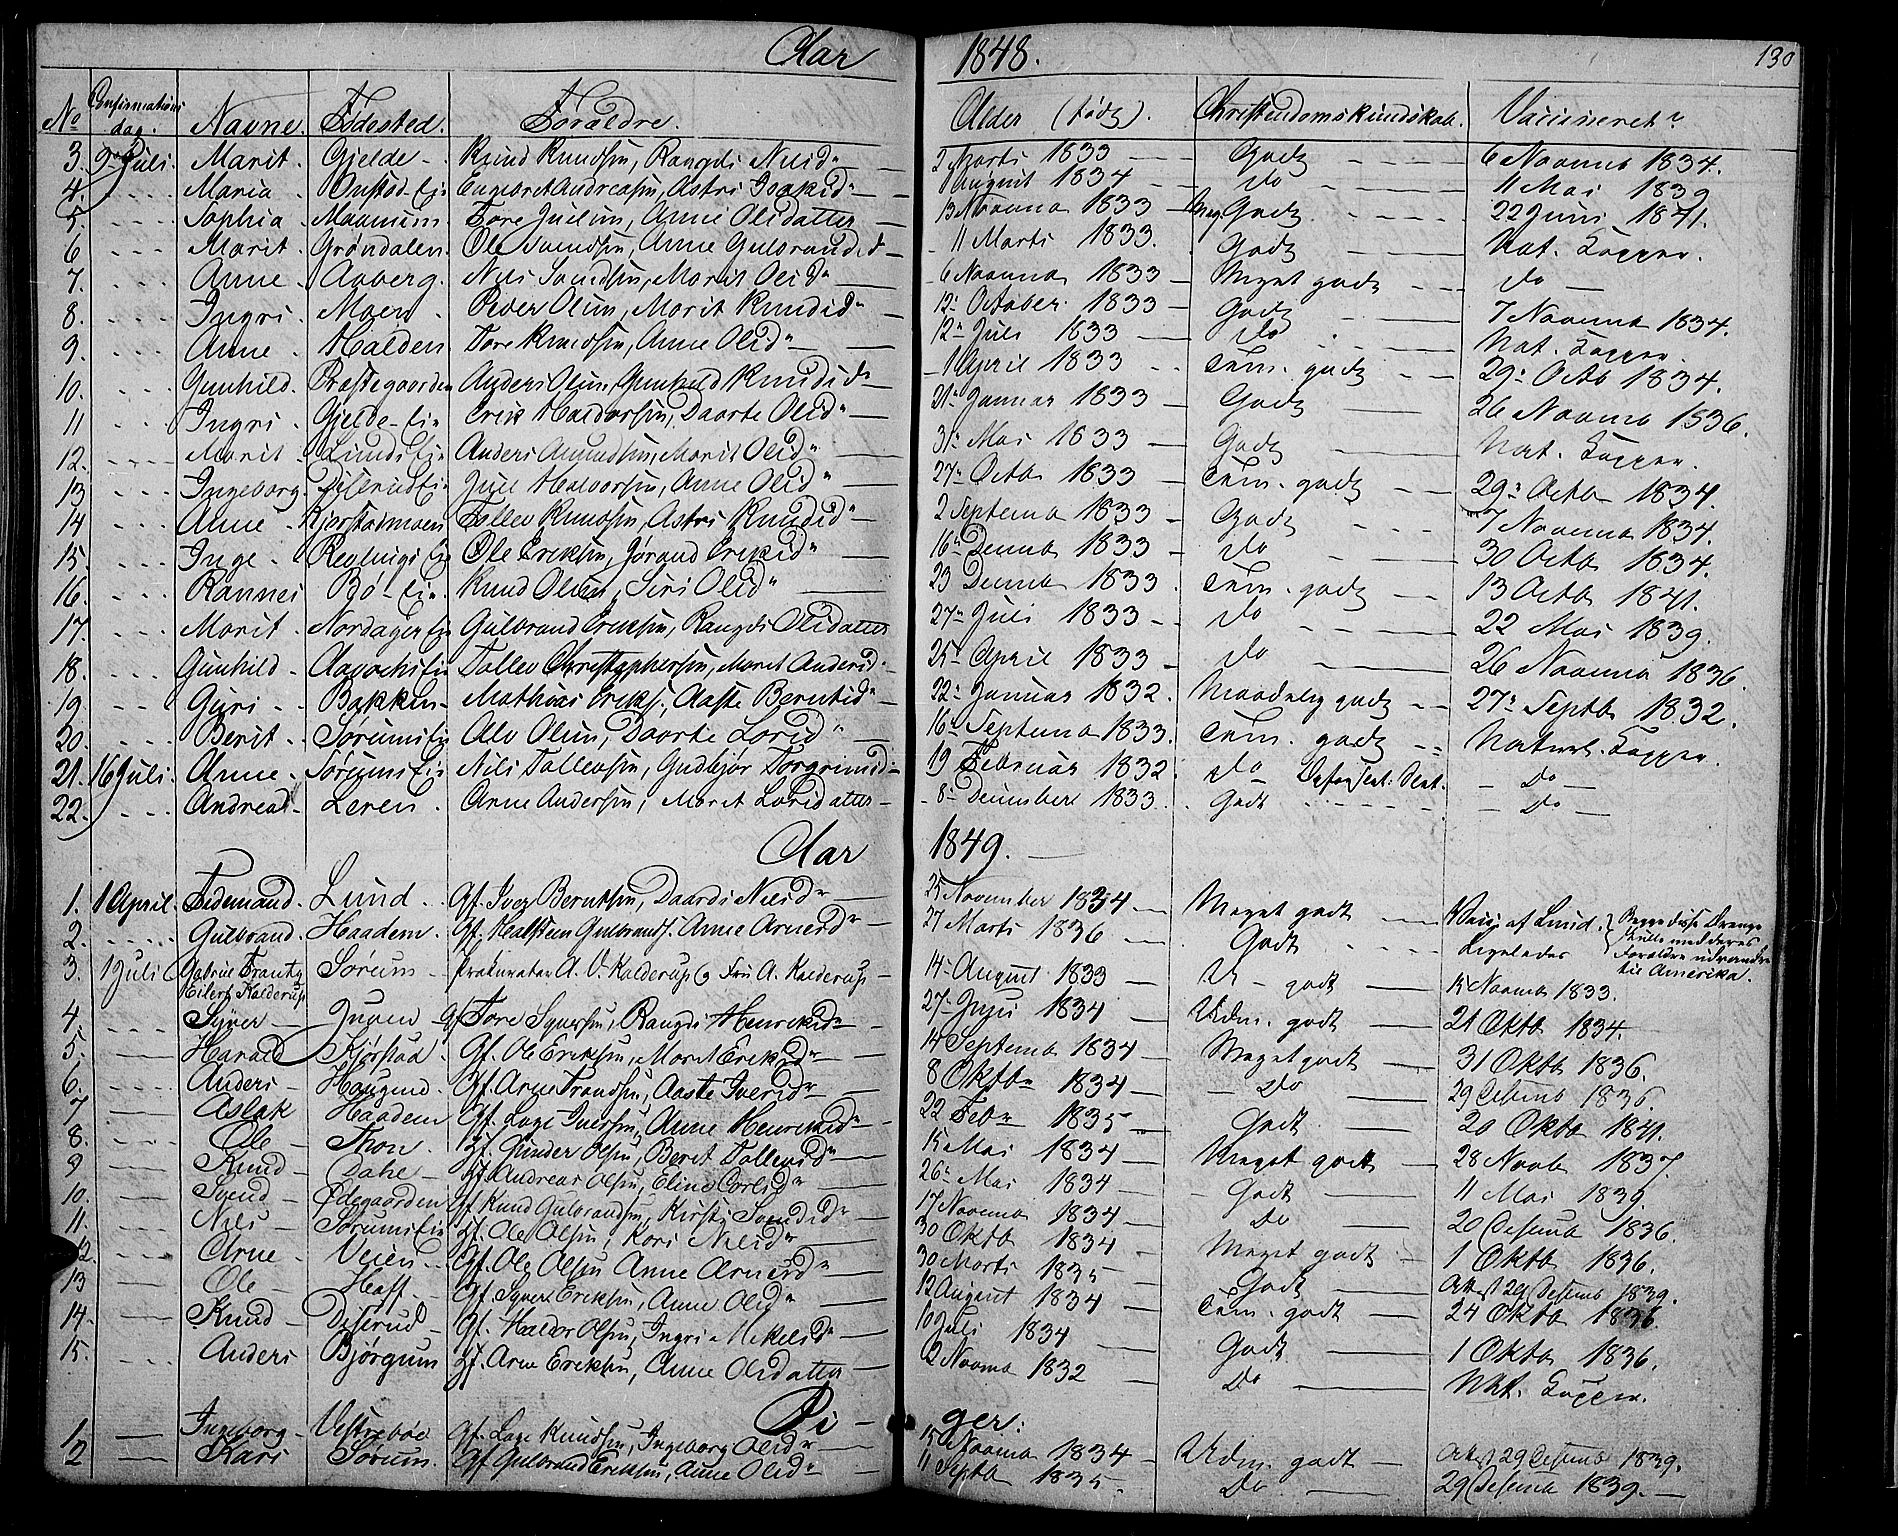 Aar 1848. 130
No Confirmations dag. Navne. Fødested. Forældre. Alder (født). Christendomskundskab. Vaccineret?
3. 9de Juli. Marit. Gjelde Knud Knudsen, Rangdi Nilsd. 2 Marts 1833 Godt 6 Novemb 1834.
4. Maria Eie Engebret Andreasen, Astri August 1834 do 11 Mai 1839
5. Sophia Maanum. Tore Juelsen, Anne Olsdatter 13 Novemb 1833 Meg. Godt 22 Juni 1841.
6 Marit. Grøndalen. Ole Svendsen, Anne Gulbrandsd. 11 Marts 1833. Godt Nat. Kopper.
7. Anne Aaberg. Nils Svendsen, Marit Olsd. 6 Novemb 1833 Meget godt do
8. Ingri. Moen. Peder Olsen, Marit Knudsd. 12 October 1833 Godt 7 Novemb 1834.
9. Anne Halden. Tore Knudsen, Anne Olsd. 12 Juli 1833 do Nat. Kopper.
10. Gunhild. Præstegaarden Anders Olsen, Gunhild Knudsd. 1 April 1833 Tem. godt 29 Octb 1834.
11 Ingri Gjelde-Eie Erik Haldorsen, Daarte Olsd. 21 Januar 1833 Godt 26 Novemb 1836.
12. Marit Lunds Eie Anders Amundsen, Marit Olsd. 31 Mai 1833 Godt Nat. Kopper.
13 Ingeborg. Diserud Eie Juel Halvorsen, Anne Olsd. 27 Octb 1833 Tem. godt 29 Octb 1834.
14 Anne Kjørstadmoen Tollev Knudsen, Astri Knudsd. 2 Septemb 1833 Godt 7 Novemb 1834.
15. Inge. Eie Ole Eriksen, Jørand Eriksd. 16 Decemb 1833 do 30 Octb 1834.
16. Rannei Bø-Eie Knud Olsen, Siri Olsd. 23 Decemb 1833 Tem. godt 13 Octb 1841.
17. Marit. Nordager Eie Gulbrand Eriksen, Rangdi Olsdatter 27 Juli 1833 do 22 Mai 1839.
18. Gunhild Eie Tollev Christophersen, Marit Andersd. 25 April 1833 do 26 Novemb 1836.
19. Guri Bakken Mathias Eriks., Aaste Berntsd. 22 Januar 1832. Maadelig godt 27 Septb 1832.
20. Berit. Sørums Eie Alv Olsen, Daarte Larsd. 16 Septemb 1833. Tem. godt Naturl. Kopper.
21. 16 Juli. Anne Sørums Eie Nils Tollevsen, Gudbjør Torgrimsd. 19 Februar 1832. do Do
22. Andreas Leren. Arne Andersen, Marit Larsdatter 8 December 1833. Godt Do
Aar 1849.
1. 1 April. Tidemand. Lund. Gf. Iver Berntsen, Daardi Nilsd. 25 November 1834 Meget godt af Lund. Begge disse Drenge skulle med deres Forældre udvandre til Amerika.
2. Gulbrand. Haadem. Gf. Halsteen Gulbrands. Anne Arnesd. 27 Marts 1836 Godt Ligeledes
3. 1 Juli Gabriel Frantz Eilert Kalderup Sørum Prokurator A. V. Kalderup og Fru A. Kalderup 14 August 1833 godt 15 Novemb 1833.
4 Syver Gf Tore Syversen, Rangdi Henriksd. 27 Juni 1834 Udm. godt 21 Oktb 1834.
5. Harald Kjørstad. Gf. Ole Eriksen, Marit Eriksd. 14 Septemb 1834 Meget godt 31 Oktb 1836.
6. Anders Haugrud. Gf. Arne Trondsen, Aaste Iversd. 8 Oktb. 1834 Do 29 Desemb 1836.
7 Aslak Haadem Gf. Lage Iversen, Anne Henriksd. 22 Febr 1835 Godt 20 Oktb 1841.
8. Ole Thon. Gf. Gunder Olsen, Beret Tollevsd. 15 Mai 1834 Meget godt 28 Novb 1837.
9 Knud Dahe Gf. Andreas Olsen, Eline Carlsd. 26 Mai 1834 Godt 11 Mai 1839.
10. Svend Ødegaarden Gf. Knud Gulbrandsen, Kirsti Svendsd. 17 Novemb 1834 Do 20 Desemb 1836.
11. Nils Sørums Eie Gf. Ole Olsen, Kari Nilsd. 30 Oktb 1834 Meget godt 1 Oktb 1836.
12. Arne Veien Gf. Ole Olsen Anne Arnesd. 30 Marts 1835 Godt Attest 29 Desemb 1839.
13 Ole Hoff Gf. Syver Eriksen, Anne Olsd. 12 August 1834 Tem. godt 24 Oktb 1836.
14. Knud Diserud Gf. Haldor Olsen, Ingri Mikelsd. 10 Juli 1834 Godt 1 Oktb 1836.
15. Anders Bjørgum Gf. Arne Eriksen, Anne Olsdatter 12 Novemb 1832 Do Nat. Kopper.
Piger.
1 Ingeborg Vestrebøe Gf. Lage Knudsen, Ingeborg Olsd. 15 Novemb 1834 Udm. godt Attest 29 Desemb 1839.
2 Kari Sørum. Gf Gulbrand Eriksen, Anne Olsd. 11 Septb 1835. Do 29 Desemb 1839.